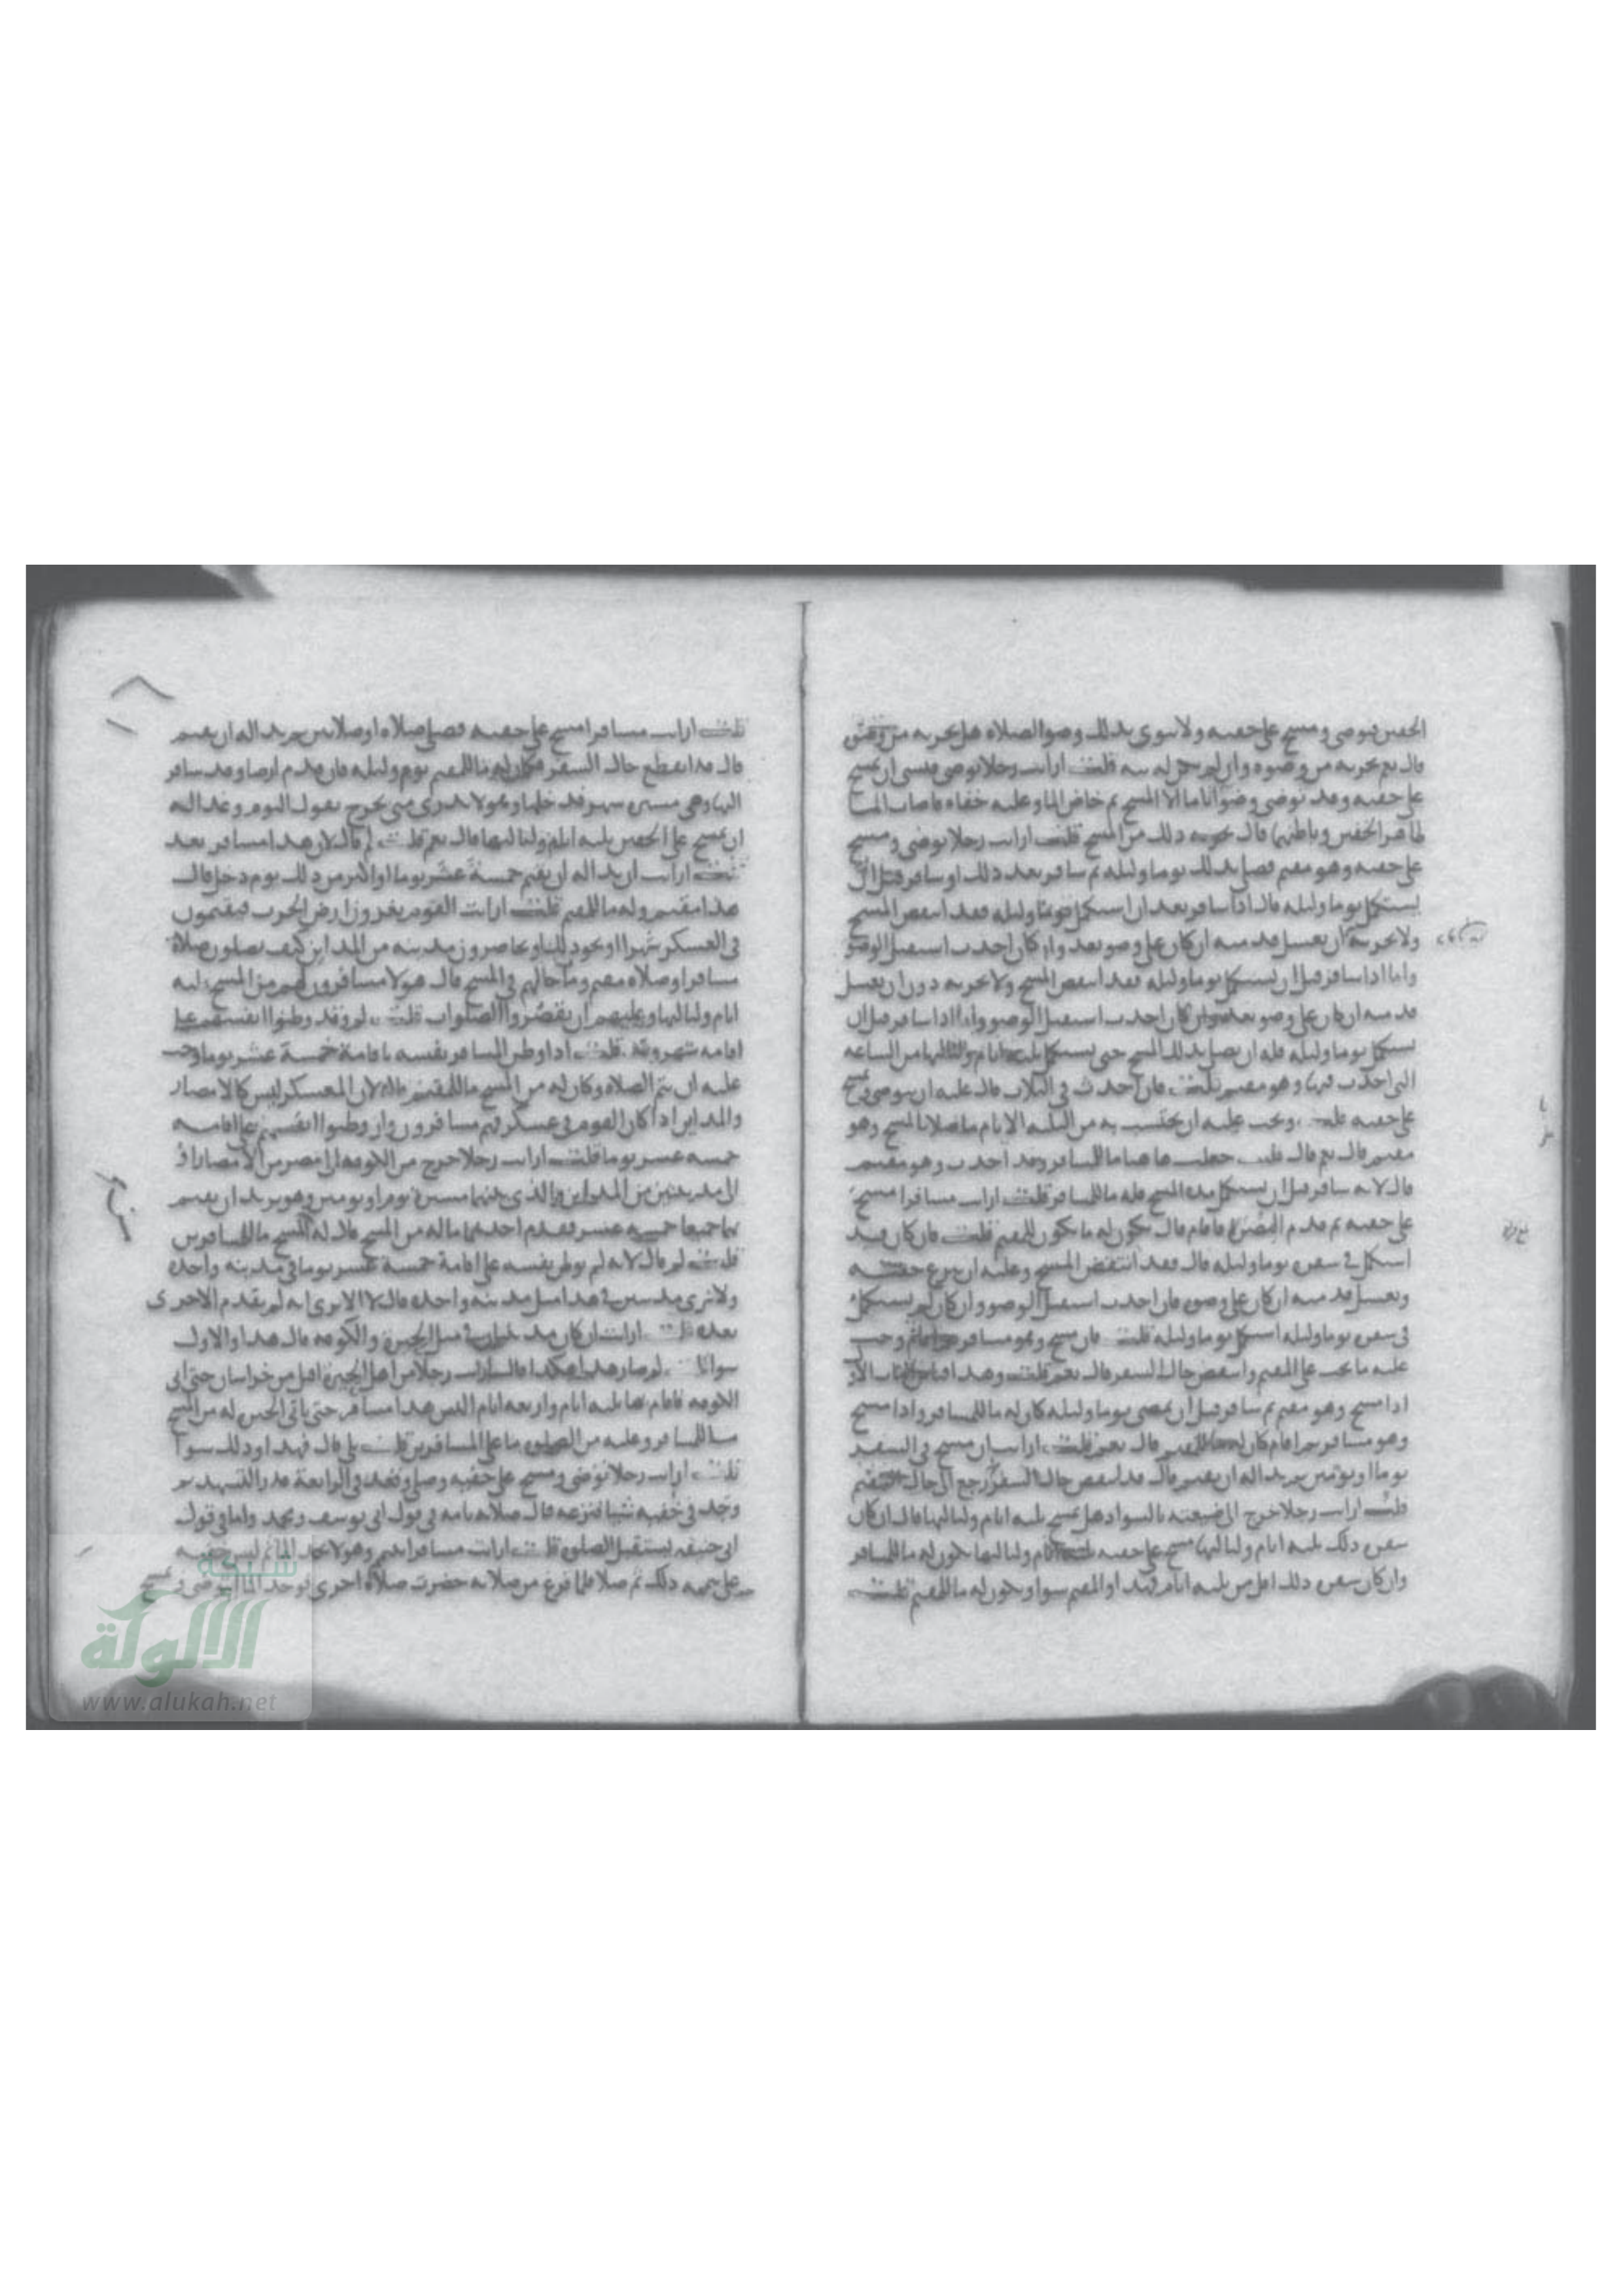 الخفين فيوضي ومسح على خفيه ولا ينوي بذلك وضو الصلاه هل يجزيه من وضو
قال نعم يجزيه من وضوه وان لم يكن له نيه قلت ارايت رجلا توضى فنسى ان يمسح
على خفيه وقد توضى وضوا تاما الا المسح ثم خاض الما وعليه خفاه فاصاب الما
ظاهر الخفين وباطنهما قال يجزيه ذلك من المسح قلت ارايت رجلا توضى ومسح
على خفيه وهو مقيم فصلى بذلك يوما وليله ثم سافر بعد ذلك او سافر قبل ان
يستكمل يوما وليله قال اذا سافر بعد ان استكمل يوما وليله فقد انتقض المسح
ولا يجزيه ان يغسل قدميه ان كان على وضو بعد وان كان احدث استقبل الوضو
واما اذا سافر قبل ان يستكمل يوما وليله فقد انتقض المسح ولا يجزيه دون ان يغسل
قدميه ان كان على وضو بعد وان كان احدث استقبل الوضو واذا سافر قبل ان
يستكمل يوما وليله فله ان يصلي بذلك المسح حتى يستكمل ثلثه ايام ولياليها من الساعه
التي احدث فيها وهو مقيم قلت فان احدث في الثلاث قال عليه ان يتوضى ويمسح
على خفيه قلت ويجب عليه ان يحتسب به من الثلثه الايام ما صلا بالمسح وهو
مقيم قال نعم قال قلت جعلت هاهنا ما للمسافر وقد احدث وهو مقيم
قال لانه سافر قبل ان يستكمل مده المسح فله ما للمسافر قلت ارايت مسافرا مسح
على خفيه ثم قدم المصر فاقام قال يكون له ما يكون للمقيم قلت فان كان قد
استكمل في سفره يوما وليله قال فقد انتقض المسح وعليه ان ينزع خفيه
ويغسل قدميه ان كان على وضوه فان احدث استقبل الوضو وان كان لم يستكمل
في سفره يوما وليله استكمل يوما وليله قلت فان مسح وهو مسافر ثم اقام وجب
عليه ما يجب على المقيم وانتقض حال السفر قال نعم قلت وهذا قياس الباب الاول
اذا مسح وهو مقيم ثم سافر قبل ان يمضي يوما وليله كان له ما للمسافر واذا مسح
وهو مسافر ثم اقام كان له ما للمقيم قال نعم قلت ارايت ان مسح في السفر
يوما او يومين ثم بدا له ان يقيم قال قد انتقض حال السفر ورجع الى حال المقيم
قلت ارايت رجلا خرج الى ضيعته بالسواد هل يمسح ثلثه ايام ولياليها قال ان كان
سفره ذلك ثلثه ايام ولياليها مسح على خفيه ثلثه ايام ولياليها يكون له ما للمسافر
وان كان سفره ذلك اقل من ثلثه ايام فهذا والمقيم سوا ويكون له ما للمقيم قلت
قلت ارايت مسافرا مسح على خفيه فصلى صلاه او صلاتين ثم بدا له ان يقيم
قال قد انقطع حال السفر وكان له ما للمقيم يوم وليله فان قدم ارضا وقد سافر
اليها وهي مسيره شهر فدخلها وهو لا يدري متى يخرج يقول اليوم وغدا اله
ان يمسح على الخفين ثلثه ايام ولياليها قال نعم قلت لم قال لان هذا مسافر بعد
قلت ارايت ان بدا له ان يقيم خمسة عشر يوما او اكثر من ذلك يوم دخل قال
هذا مقيم وله ما للمقيم قلت ارايت القوم يغزون ارض الحرب فيقيمون
في العسكر شهرا او نحو ذلك او يحاصرون مدينه من المداين كيف يصلون صلاة
مسافر او صلاه مقيم وما حالهم في المسح قال هولا مسافرون لهم من المسح ثلثه
ايام ولياليها وعليهم ان يقصروا الصلوات قلت لم وقد وطنوا انفسهم على
اقامه شهر قلت اذا وطن المسافر نفسه باقامة خمسة عشر يوما وجب
عليه ان يتم الصلاه وكان له من المسح ما للمقيم قال لان العسكر ليس كالامصار
والمداين اذا كان القوم في عسكر فهم مسافرون وان وطنوا انفسهم على اقامه
خمسه عشر يوما قلت ارايت رجلا خرج من الكوفه الى مصر من الامصار او
الى مدينتين من المداين والذي بينهما مسيرة يوم او يومين وهو يريد ان يقيم
بهما جميعا خمسه عشر فقدم احديهما ما له من المسح قال له المسح ما للمسافرين
قلت لم قال لانه لم يوطن نفسه على اقامة خمسة عشر يوما في مدينه واحده
ولا ترى مدينتين في هذا مثل مدينه واحده قال لا الا ترى انه لم يقدم الاخرى
بعد قلت ارايت ان كان مدينتان في مثل الحيره والكوفه قال هذا والاول
سوا قلت لم صار هذا هكذا قال ارايت رجلا من اهل الحيره اقبل من خراسان حتى اتى
الكوفه فاقام بها ثلثه ايام واربعه ايام اليس هذا مسافر حتى ياتي الحيره له من المسح
ما للمسافر وعليه من الصلوه ما على المسافرين قلت بلى قال فهذا وذلك سوا
قلت ارايت رجلا توضى ومسح على خفيه وصلى وقعد في الرابعة قدر التشهد ثم
وجد في خفيه شيئا فنزعه قال صلاته تامه في قول ابي يوسف ومحمد واما في قول
ابي حنيفه يستقبل الصلوه قلت ارايت مسافرا تيمم وهو لا يجد الما ثم لبس خفيه
على تيممه ذلك ثم صلا فلما فرغ من صلاته حضرت صلاة اخرى فوجد الما ايتوضى ويمسح
شبكة
الألوكة
www.alukah.net